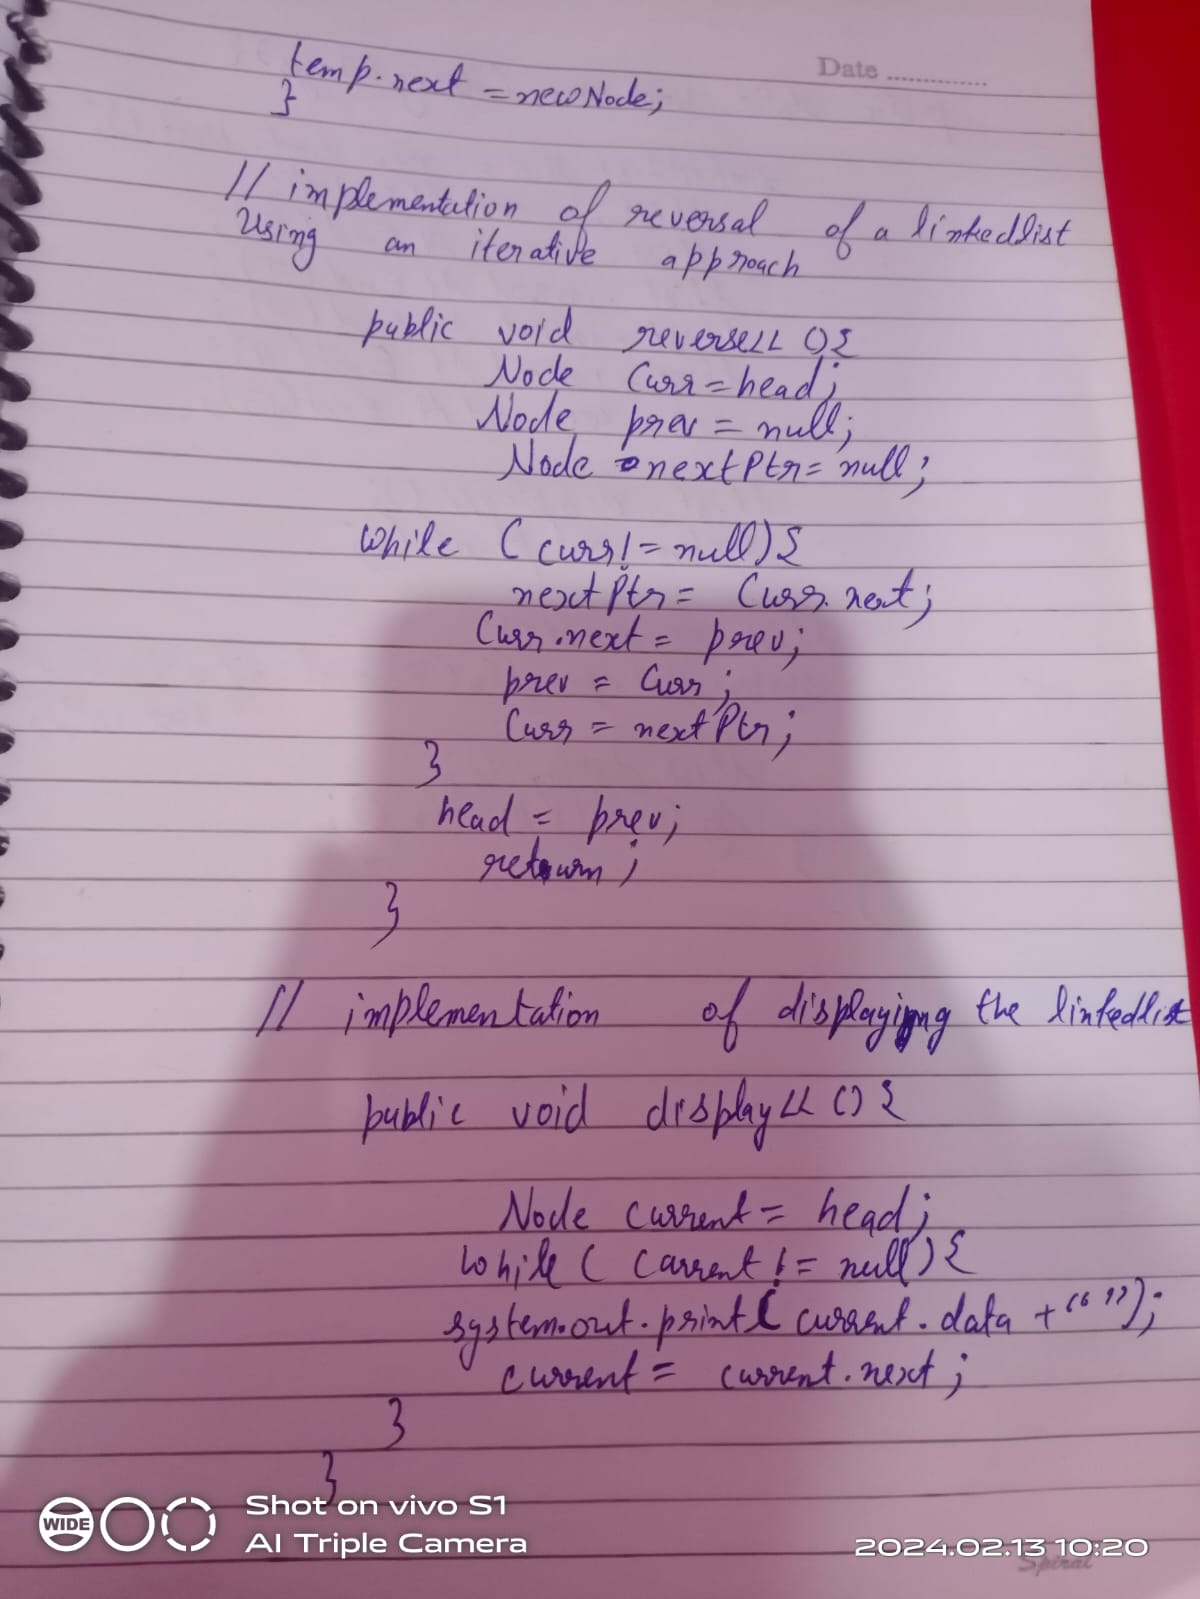 Date ..............
temp.next = newNode;
}
// implementation of reversal of a linkedlist
Using an iterative approach
public void reverseLL () {
Node Curr = head;
Node prev = null;
Node nextPtr = null;
while ( curr != null) {
nextPtr = Curr. next;
Curr.next = prev;
prev = Curr;
Curr = nextPtr;
}
head = prev;
return;
}
// implementation of displaying the linkedlist
public void displayLL () {
Node current = head;
while ( current != null) {
system.out.print( current.data + " ");
current = current.next;
}
}
WIDE
Shot on vivo S1
AI Triple Camera
2024.02.13 10:20
Spiral